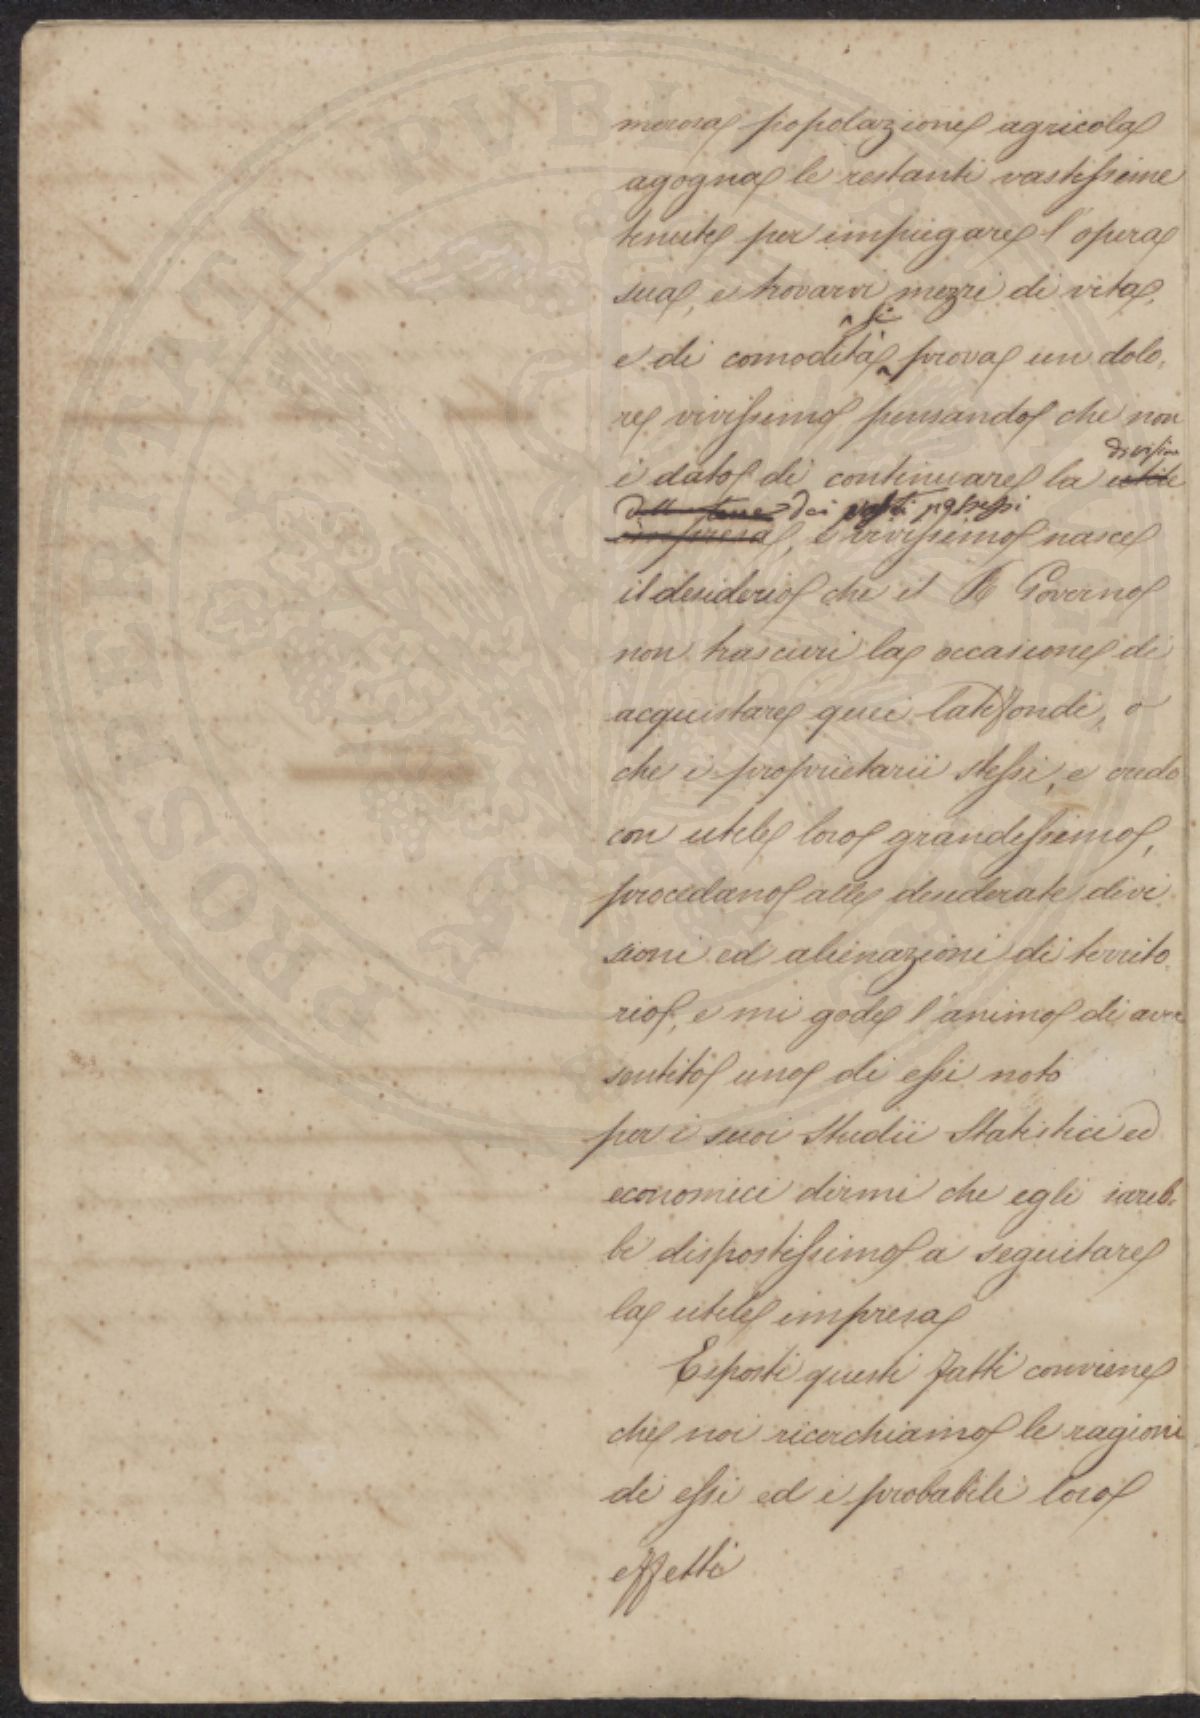 merosa popolazione agricola
agogna le restanti vastissime
tenute per impiegare l'opera
sua, e trovarvi mezzi di vita,
si
e di comodità prova un dolo,
re vivissimo pensando che non
divisione
è dato di continuare la utile
delle terre dei vasti possessi
impresa, e vivissimo nasce
il desiderio che il R Governo
non trascuri la occasione di
acquistare quei latifondi, o
che i proprietarii stessi, e credo
con utile loro grandissimo,
procedano alle desiderate divi
sioni ed alienazioni di territo
rio, e mi gode l'animo di aver
sentito uno di essi noto
per i suoi Studii Statistici ed
economici dirmi che egli sareb,
be dispostissimo a seguitare
la utile impresa
Esposti questi fatti conviene
che noi ricerchiamo le ragioni
di essi ed i probabili loro
effetti
PROSPERITATI PVBLICAE